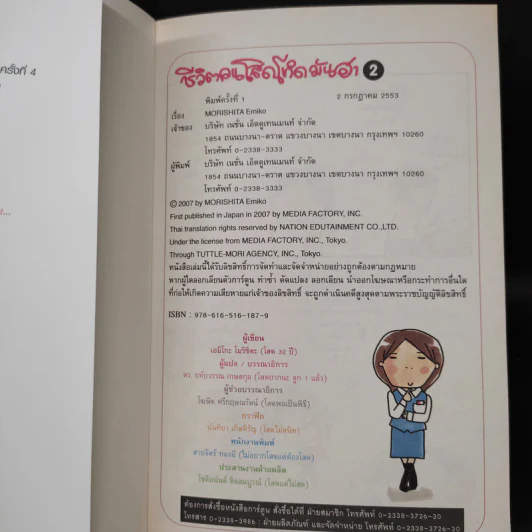 ครั้งที่ 4
ชีวิตคนโสดโหดมันฮา 2
พิมพ์ครั้งที่ 1 2 กรกฎาคม 2553
เรื่อง MORISHITA Emiko
เจ้าของ บริษัท เนชั่น เอ็ดดูเทนเมนท์ จำกัด
1854 ถนนบางนา-ตราด แขวงบางนา เขตบางนา กรุงเทพฯ 10260
โทรศัพท์ 0-2338-3333
ผู้พิมพ์ บริษัท เนชั่น เอ็ดดูเทนเมนท์ จำกัด
1854 ถนนบางนา-ตราด แขวงบางนา เขตบางนา กรุงเทพฯ 10260
โทรศัพท์ 0-2338-3333
© 2007 by MORISHITA Emiko
First published in Japan in 2007 by MEDIA FACTORY, INC.
Thai translation rights reserved by NATION EDUTAINMENT CO.,LTD.
Under the license from MEDIA FACTORY, INC., Tokyo.
Through TUTTLE-MORI AGENCY, INC., Tokyo.
หนังสือเล่มนี้ได้รับลิขสิทธิ์การจัดทำและจัดจำหน่ายอย่างถูกต้องตามกฎหมาย
หากผู้ใดลอกเลียนตัวการ์ตูน ทำซ้ำ ดัดแปลง ลอกเลียน นำออกโฆษณาหรือกระทำการอื่นใด
ที่ก่อให้เกิดความเสียหายแก่เจ้าของลิขสิทธิ์ จะถูกดำเนินคดีสูงสุดตามพระราชบัญญัติลิขสิทธิ์
ISBN : 978-616-516-187-9
ผู้เขียน
เอมิโกะ โมริชิตะ (โสด 32 ปี)
ผู้แปล / บรรณาธิการ
ผู้ช่วยบรรณาธิการ
กราฟิค
พนักงานพิมพ์
สายจิตร์ ทองมี (ไม่อยากโสดแต่ต้องโสด)
ประสานงานฝ่ายผลิต
ต้องการสั่งซื้อหนังสือการ์ตูน สั่งซื้อได้ที่ ฝ่ายสมาชิก โทรศัพท์ 0-2338-3726-30
โทรสาร 0-2338-3986 : ฝ่ายผลิตภัณฑ์ และจัดจำหน่าย โทรศัพท์ 0-2338-3726-30